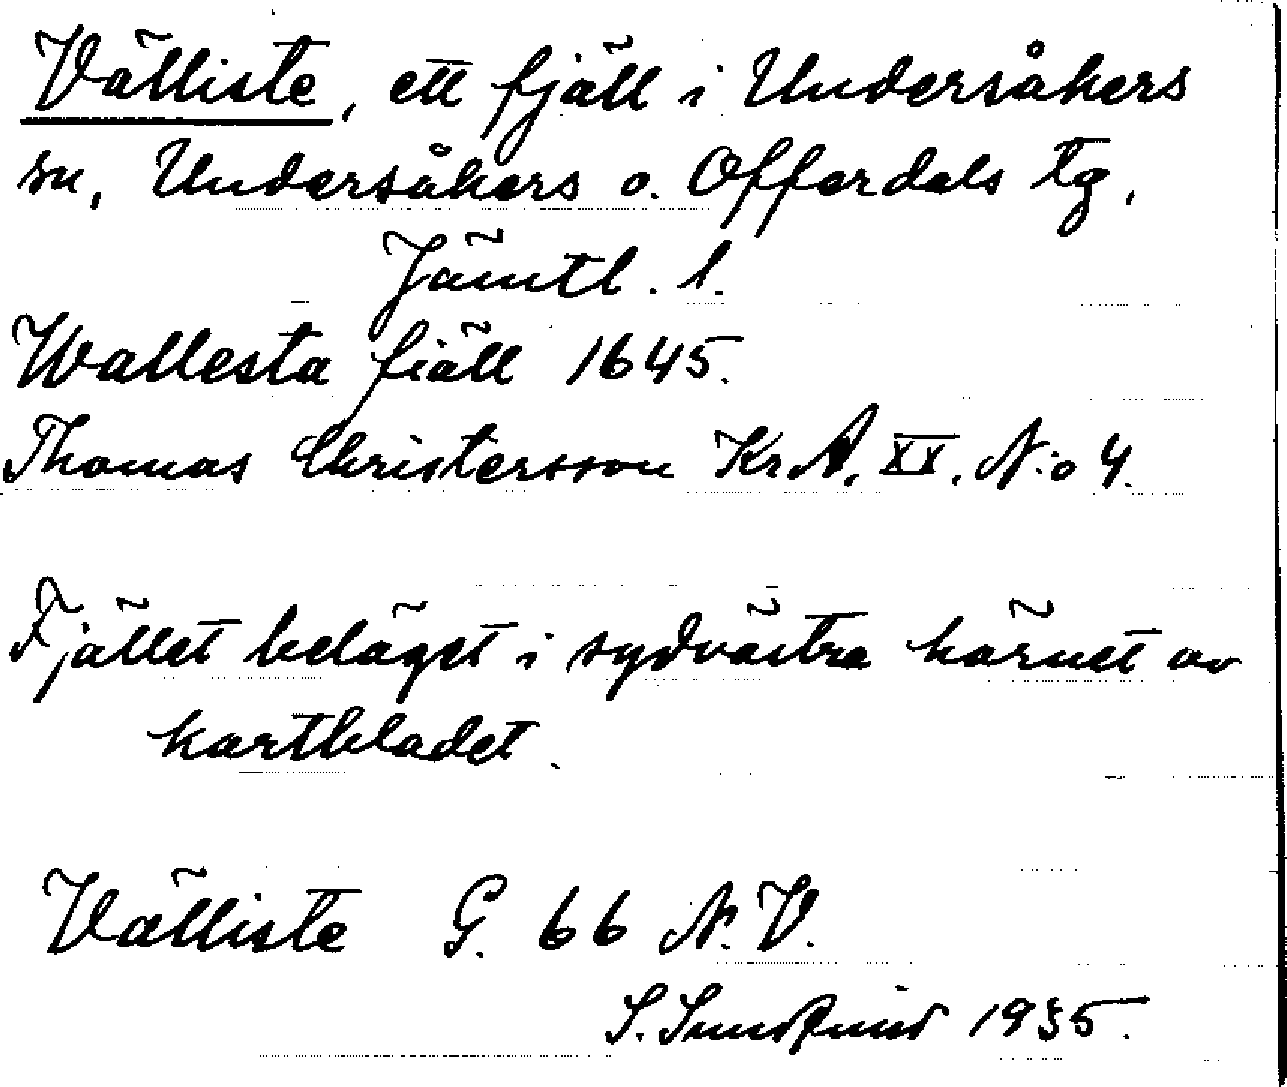 Välliste, ett fjäll i Undersåkers
sn, Undersåkers o. Offerdals tg,
Jämtl. l.
Wallesta fiäll 1645.
Thomas Christersson Kr.A. XX. N:o 4.
Fjället beläget i sydvästra hörnet av
kartbladet.
Välliste G. 66 N.V.
S. 1935.